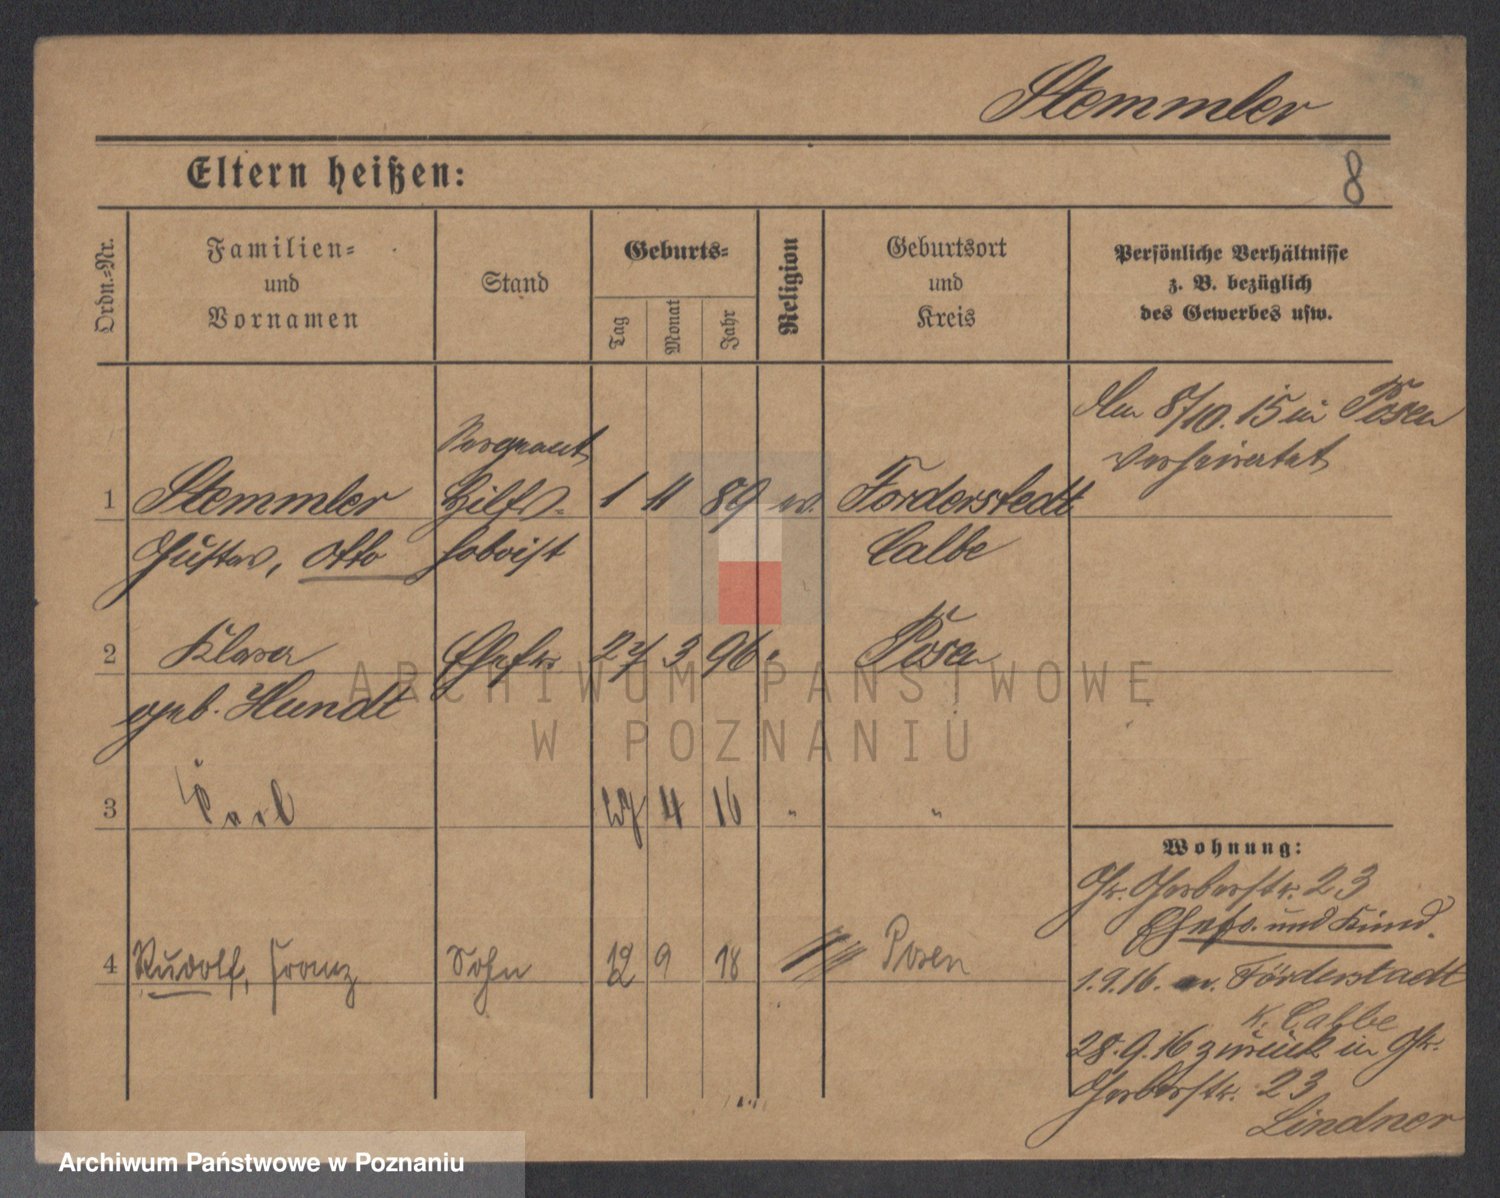 Stemmler
Eltern heißen:
8
Ordn.-Nr.
Familien-
und
Vornamen
Stand
Geburts-
Tag
Monat
Jahr
Religion
Geburtsort
und
Kreis
Persönliche Verhältnisse
z. B. bezüglich
des Gewerbes usw.
den 8/10. 15 in Posen
verheiratet
Sergeant
1 Stemmler Hilfs- 1 11 89 ev. Förderstedt
Gustav, Otto hoboist Calbe
2 Klara Ehefr. 27 3 96 " Posen
geb. Hundt
3 27 4 16 " "
Wohnung:
Gr. Gerberstr. 23
Ehefr. und Kind.
4 Rudolf, Franz Sohn 12 9 18 Posen
1.9.16. Förderstadt
K. Calbe
28.9.16 zurück in Gr.
Gerberstr. 23
Lindner
ARCHIWUM PAŃSTWOWE
W POZNANIU
Archiwum Państwowe w Poznaniu